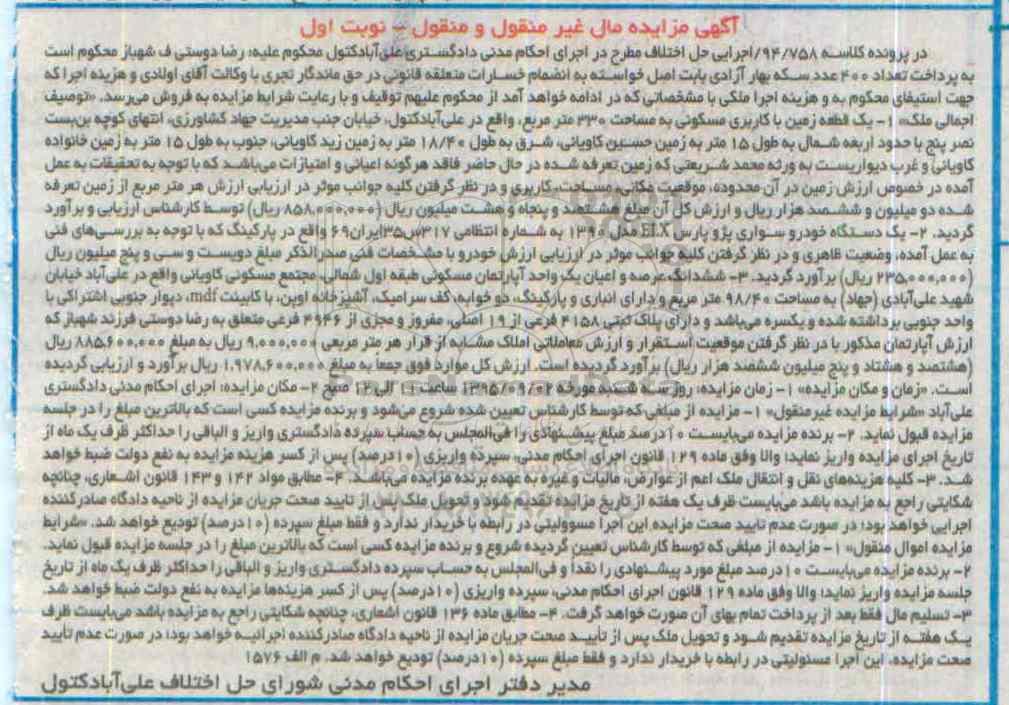 آگهی مزایده مال غیر منقول و منقول – نوبت اول
در پرونده کلاسه ۹۴/۷۵۸/اجرایی حل اختلاف مطرح در اجرای احکام مدنی دادگستری علی‌آبادکتول محکوم علیه: رضا دوستی ف شهباز محکوم است
به پرداخت تعداد ۴۰۰ عدد سکه بهار آزادی بابت اصل خواسته به انضمام خسارات متعلقه قانونی در حق ماندگار تجری با وکالت آقای اولادی و هزینه اجرا که
جهت استیفای محکوم به و هزینه اجرا ملکی با مشخصاتی که در ادامه خواهد آمد از محکوم علیهم توقیف و با رعایت شرایط مزایده به فروش می‌رسد. «توصیف
اجمالی ملک» ۱- یک قطعه زمین با کاربری مسکونی به مساحت ۳۳۰ متر مربع، واقع در علی‌آبادکتول، خیابان جنب مدیریت جهاد کشاورزی، انتهای کوچه بن‌بست
نصر پنج با حدود اربعه شمال به طول ۱۵ متر به زمین حسین کاویانی، شرق به طول ۱۸/۴۰ متر به زمین زید کاویانی، جنوب به طول ۱۵ متر به زمین خانواده
کاویانی و غرب دیواریست به ورثه محمد شریعتی که زمین تعرفه شده در حال حاضر فاقد هرگونه اعیانی و امتیازات می‌باشد که با توجه به تحقیقات به عمل
آمده در خصوص ارزش زمین در آن محدوده، موقعیت مکانی، مساحت، کاربری و در نظر گرفتن کلیه جوانب موثر در ارزیابی ارزش هر متر مربع از زمین تعرفه
شده دو میلیون و ششصد هزار ریال و ارزش کل آن مبلغ هشتصد و پنجاه و هشت میلیون ریال (۸۵۸,۰۰۰,۰۰۰ ریال) توسط کارشناس ارزیابی و برآورد
گردید. ۲- یک دستگاه خودرو سواری پژو پارس ELX مدل ۱۳۹۰ به شماره انتظامی ۳۱۷س۳۵ایران۶۹ واقع در پارکینگ که با توجه به بررسی‌های فنی
به عمل آمده، وضعیت ظاهری و در نظر گرفتن کلیه جوانب موثر در ارزیابی ارزش خودرو با مشخصات فنی صدرالذکر مبلغ دویست و سی و پنج میلیون ریال
(۲۳۵,۰۰۰,۰۰۰ ریال) برآورد گردید. ۳- ششدانگ عرصه و اعیان یک واحد آپارتمان مسکونی طبقه اول شمالی، مجتمع مسکونی کاویانی واقع در علی‌آباد خیابان
شهید علی‌آبادی (جهاد) به مساحت ۹۸/۴۰ متر مربع و دارای انباری و پارکینگ، دو خوابه، کف سرامیک، آشپزخانه اوپن، با کابینت mdf، دیوار جنوبی اشتراکی با
واحد جنوبی برداشته شده و یکسره می‌باشد و دارای پلاک ثبتی ۴۱۵۸ فرعی از ۱۹ اصلی، مفروز و مجزی از ۴۹۴۶ فرعی متعلق به رضا دوستی فرزند شهباز که
ارزش آپارتمان مذکور با در نظر گرفتن موقعیت استقرار و ارزش معاملاتی املاک مشابه از قرار هر متر مربعی ۹,۰۰۰,۰۰۰ ریال به مبلغ ۸۸۵,۶۰۰,۰۰۰ ریال
(هشتصد و هشتاد و پنج میلیون ششصد هزار ریال) برآورد گردیده است. ارزش کل موارد فوق جمعا به مبلغ ۱,۹۷۸,۶۰۰,۰۰۰ ریال برآورد و ارزیابی گردیده
است. «زمان و مکان مزایده» ۱- زمان مزایده: روز سه شنبه مورخه ۱۳۹۵/۰۹/۰۲ ساعت ۱۱ الی ۱۲ صبح ۲- مکان مزایده: اجرای احکام مدنی دادگستری
علی‌آباد «شرایط مزایده غیرمنقول» ۱- مزایده از مبلغی که توسط کارشناس تعیین شده شروع می‌شود و برنده مزایده کسی است که بالاترین مبلغ را در جلسه
مزایده قبول نماید. ۲- برنده مزایده می‌بایست ۱۰ درصد مبلغ پیشنهادی را فی‌المجلس به حساب سپرده دادگستری واریز و الباقی را حداکثر ظرف یک ماه از
تاریخ اجرای مزایده واریز نماید؛ والا وفق ماده ۱۲۹ قانون اجرای احکام مدنی، سپرده واریزی (۱۰درصد) پس از کسر هزینه مزایده به نفع دولت ضبط خواهد
شد. ۳- کلیه هزینه‌های نقل و انتقال ملک اعم از عوارض، مالیات و غیره به عهده برنده مزایده می‌باشد. ۴- مطابق مواد ۱۴۲ و ۱۴۳ قانون اشعاری، چنانچه
شکایتی راجع به مزایده باشد می‌بایست ظرف یک هفته از تاریخ مزایده تقدیم شود و تحویل ملک پس از تایید صحت جریان مزایده از ناحیه دادگاه صادرکننده
اجرایی خواهد بود؛ در صورت عدم تایید صحت مزایده این اجرا مسوولیتی در رابطه با خریدار ندارد و فقط مبلغ سپرده (۱۰درصد) تودیع خواهد شد. «شرایط
مزایده اموال منقول» ۱- مزایده از مبلغی که توسط کارشناس تعیین گردیده شروع و برنده مزایده کسی است که بالاترین مبلغ را در جلسه مزایده قبول نماید.
۲- برنده مزایده می‌بایست ۱۰ درصد مبلغ مورد پیشنهادی را نقداً و فی‌المجلس به حساب سپرده دادگستری واریز و الباقی را حداکثر ظرف یک ماه از تاریخ
جلسه مزایده واریز نماید؛ والا وفق ماده ۱۲۹ قانون اجرای احکام مدنی، سپرده واریزی (۱۰درصد) پس از کسر هزینه‌ها مزایده به نفع دولت ضبط خواهد شد.
۳- تسلیم مال فقط بعد از پرداخت تمام بهای آن صورت خواهد گرفت. ۴- مطابق ماده ۱۳۶ قانون اشعاری، چنانچه شکایتی راجع به مزایده باشد می‌بایست ظرف
یک هفته از تاریخ مزایده تقدیم شود و تحویل ملک پس از تأیید صحت جریان مزایده از ناحیه دادگاه صادرکننده اجرائیه خواهد بود؛ در صورت عدم تأیید
صحت مزایده، این اجرا مسئولیتی در رابطه با خریدار ندارد و فقط مبلغ سپرده (۱۰درصد) تودیع خواهد شد. م الف ۱۵۷۶
مدیر دفتر اجرای احکام مدنی شورای حل اختلاف علی‌آبادکتول